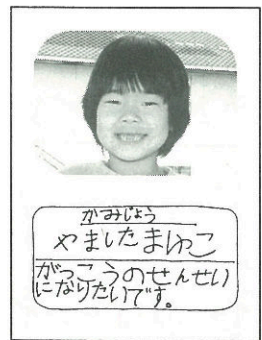 かみじょう
やましたまゆこ
がっこうのせんせい
になりたいです。